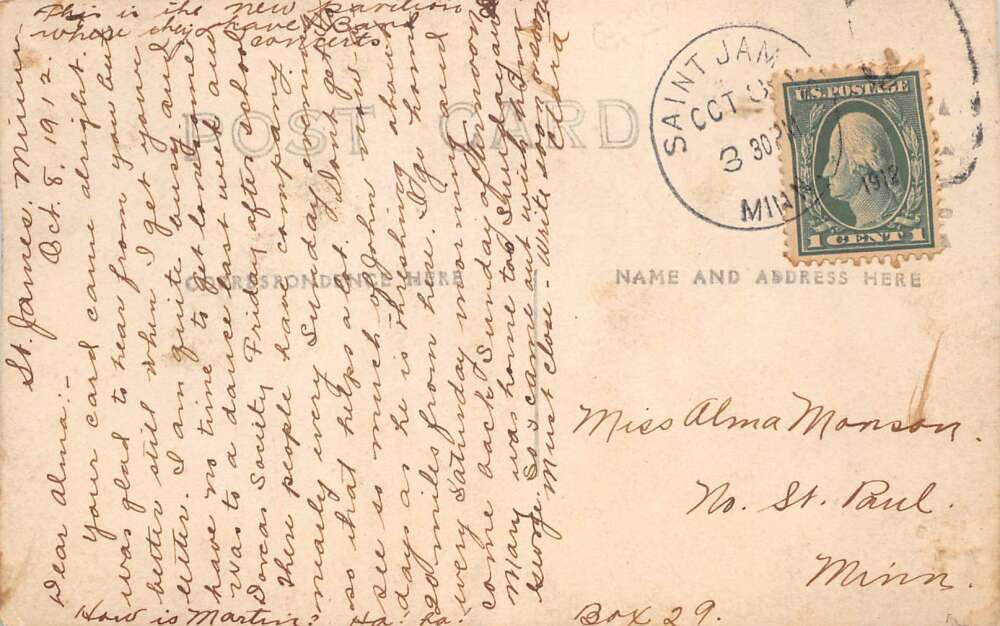 This is the new pavilion
where they have Band
concerts
St. James, Minn.
Oct. 8. 1912.
Dear Alma:-
Your card came alright
was glad to hear from you but
better still when I get your
letter. I am quite busy and
have no time to get lonesome.
Was to a dance last week and
Dorcas Society Friday after school
These people have company
nearly every Sunday evening
so that helps a lot. I dont get to
see so much of John now-
days as he is thrashing about
20 miles from here. I go home
every Saturday morning and
come back Sunday afternoon
Mary was home too Sunday and
George S. came out with horse on
Must close - Write soon and
How is Martin? Ha! ha!
POST CARD
CORRESPONDENCE HERE
NAME AND ADDRESS HERE
SAINT JAM
OCT
3 30 PM
MINN
1912
U.S. POSTAGE
1 CENT 1
Miss Alma Monson.
No. St. Paul.
Minn.
Box 29.